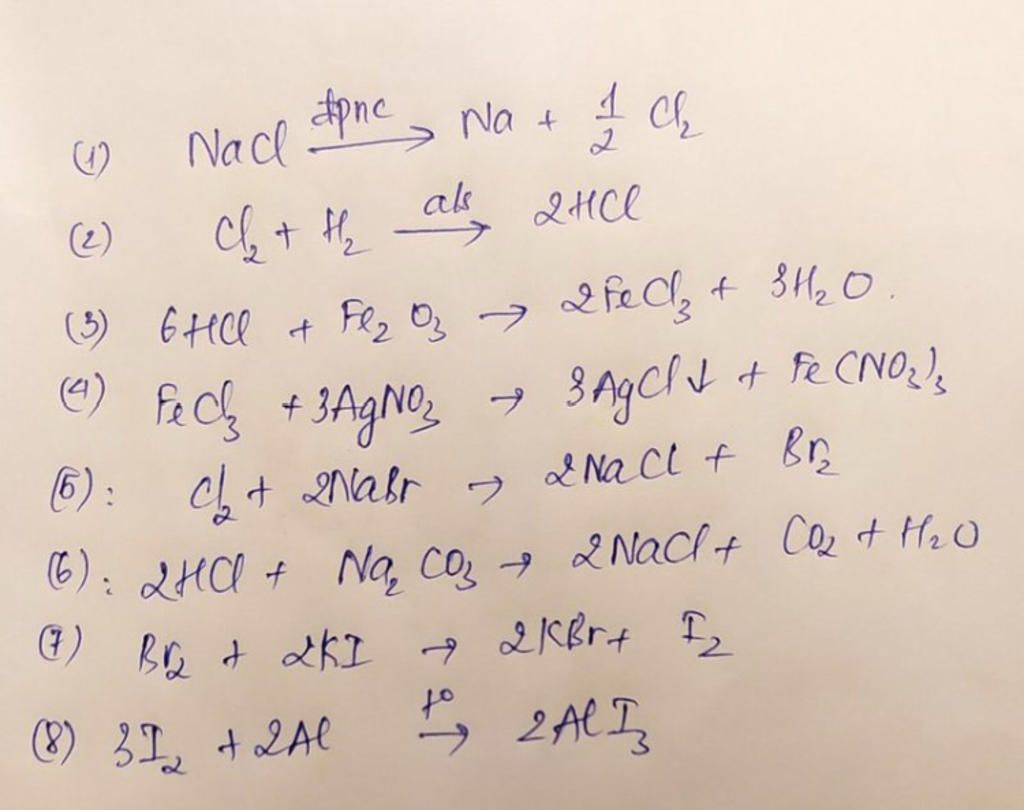 (1) NaCl đpnc → Na + 1/2 Cl₂
(2) Cl₂ + H₂ a/s → 2HCl
(3) 6HCl + Fe₂O₃ → 2FeCl₃ + 3H₂O.
(4) FeCl₃ + 3AgNO₃ → 3AgCl↓ + Fe(NO₃)₃
(5): Cl₂ + 2NaBr → 2NaCl + Br₂
(6): 2HCl + Na₂CO₃ → 2NaCl + CO₂ + H₂O
(7) Br₂ + 2KI → 2KBr + I₂
(8) 3I₂ + 2Al t° → 2AlI₃